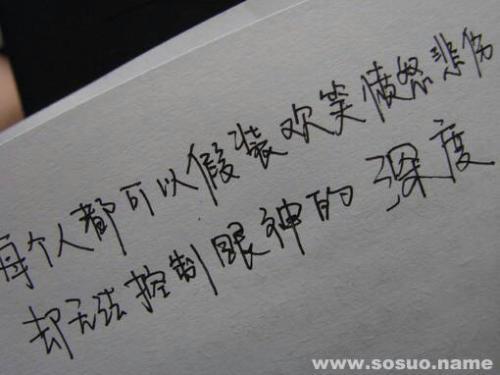 每个人都可以假装欢笑愤怒悲伤
却无法控制眼神的深度
www.sosuo.name